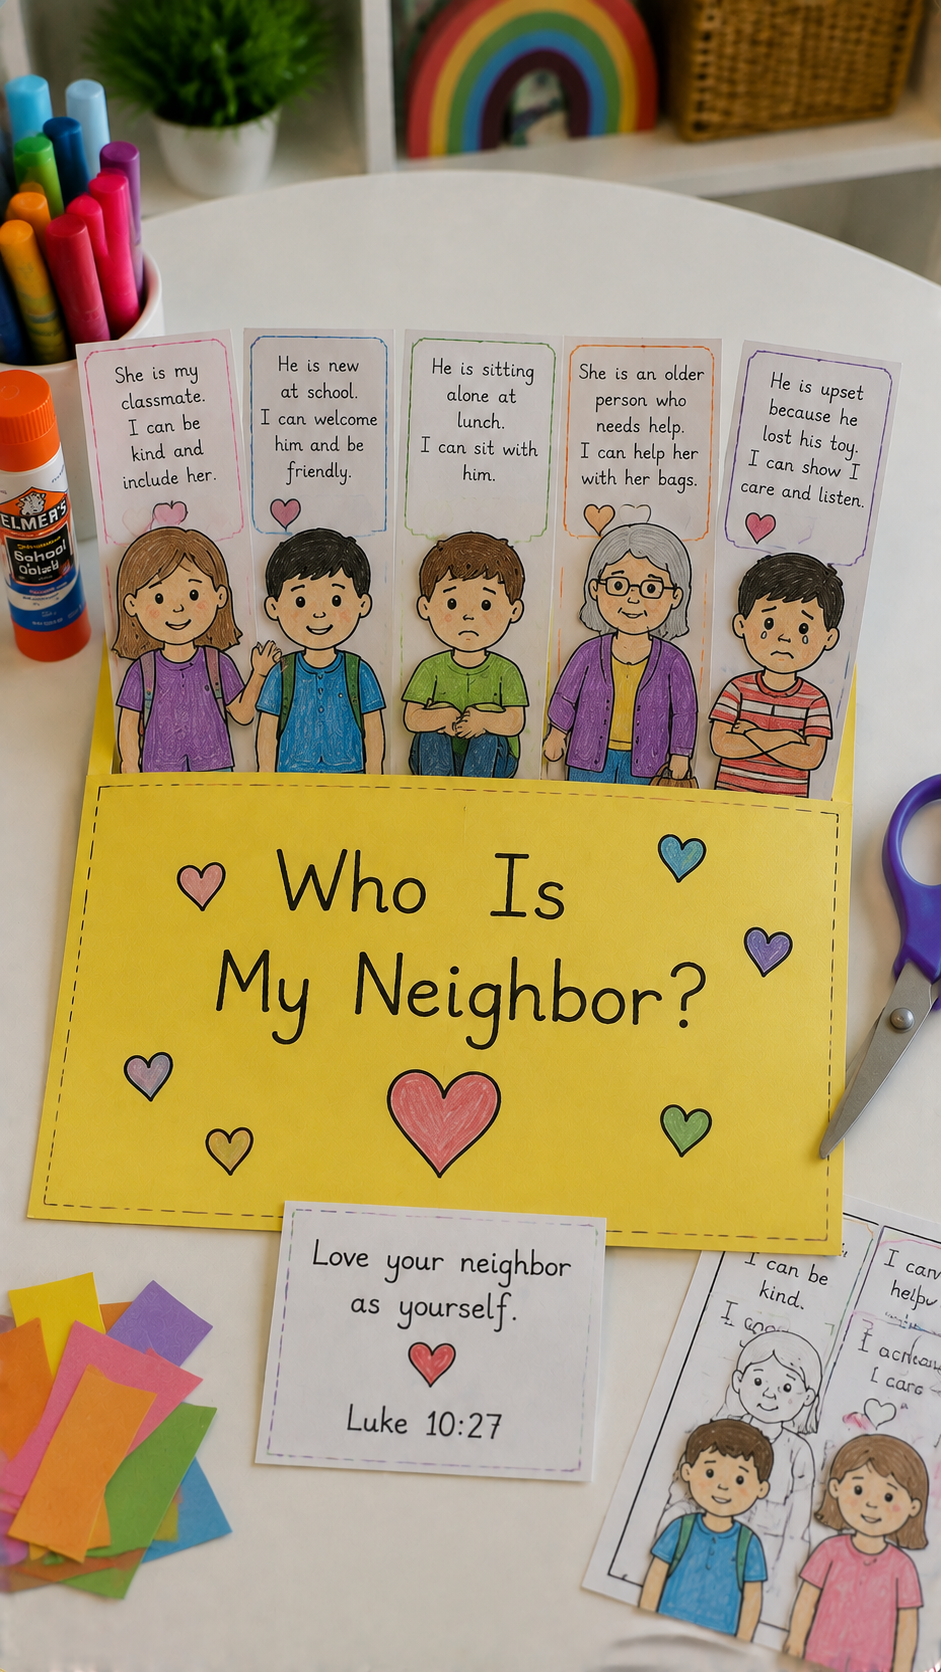 She is my
classmate.
I can be
kind and
include her.
He is new
at school.
I can welcome
him and be
friendly.
He is sitting
alone at
lunch.
I can sit with
him.
She is an older
person who
needs help.
I can help her
with her bags.
He is upset
because he
lost his toy.
I can show I
care and listen.
ELMER'S
School
Who Is
My Neighbor?
Love your neighbor
as yourself.
Luke 10:27
I can be
kind.
I
I can
I
I care